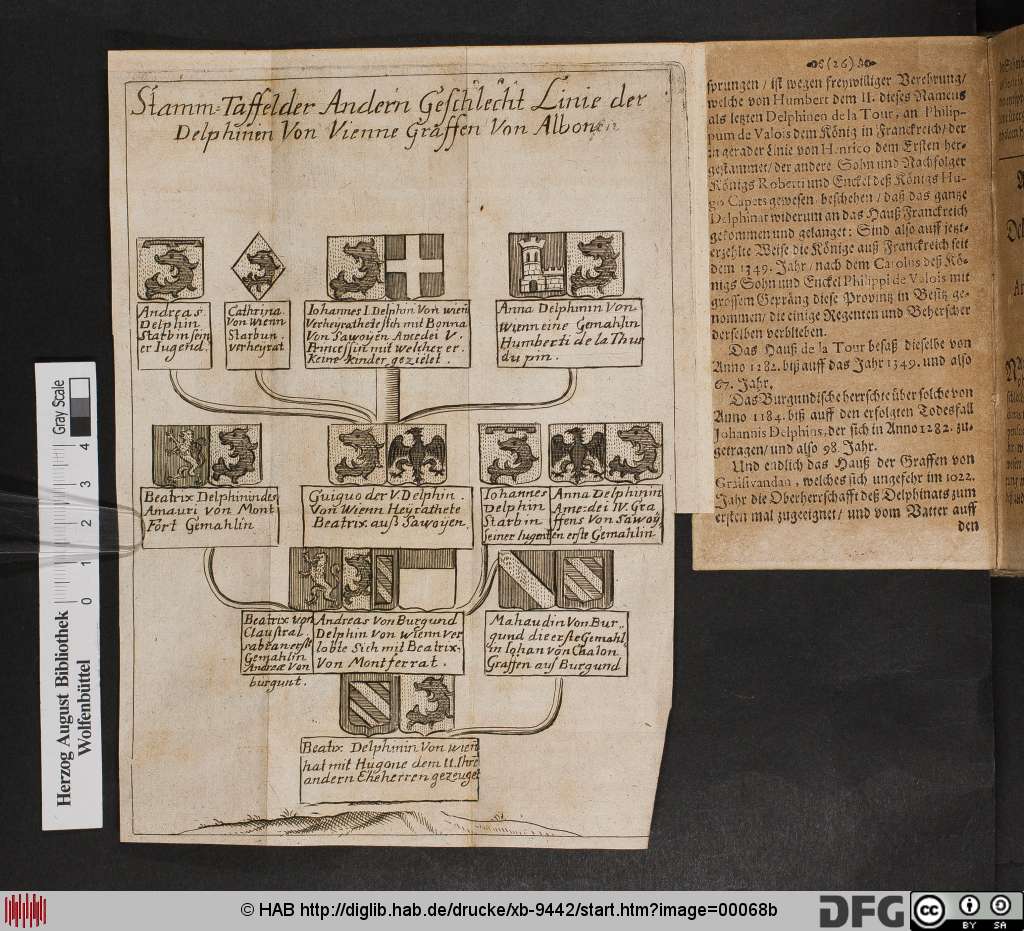 Stamm=Taffel der Andern Geschlecht Linie der
Delphinen Von Vienne Graffen Von Albonen
Andreas
Delphin
Starb in sein
er Iugend.
Cathrina
Von Wienn
Starb un.
verheyrat
Iohannes I Delphin Von wien
Verheyrathete sich mit Bonna
Von Sawoyen Amedei V.
Princessin mit welcher er.
Keine Kinder gezielet.
Anna Delphinin Von
Wienn eine Gemahlin
Humberti de la Thur
du pin.
Beatrix Delphinin des
Amauri von Mont
Fort Gemahlin
Guiguo der V Delphin.
Von Wienn Heyrathete
Beatrix auß Sawoyen.
Iohannes
Delphin
Starb in
seiner Iugent
Anna Delphinin
Ame=dei IV. Gra
ffens Von Sawoÿ
en erste Gemahlin
Beatrix von
Claustral
sabran erste
Gemahlin
Andreæ Von
burgunt.
Andreas Von Burgund
Delphin Von Wienn ver
lobte Sich mit Beatrix
Von Montferrat.
Mahaudin Von Bur„
gund die erste Gemahl
in Iohan von Chalon
Graffen auß Burgund
Beatix Delphinin Von wien
hat mit Hugone dem II. Ihrē
andern Eheherren gezeuget
(26)
sprungen / ist wegen freywilliger Verehrung /
welche von Humbert dem II. dieses Namens
als letzten Delphinen de la Tour, an Philip-
pum de Valois dem König in Franckreich / der
in gerader Linie von Henrico dem Ersten her-
gestammet / der andere Sohn und Nachfolger
Königs Roberti und Enckel deß Königs Hu-
go Capets gewesen / beschehen / daß das gantze
Delphinat widerum an das Hauß Franckreich
gekommen und gelanget: Sind also auff jetzt-
erzehlte Weise die Könige auß Franckreich seit
dem 1349. Jahr / nach dem Carolus deß Kö-
nigs Sohn und Enckel Philippi de Valois mit
grossem Gepräng diese Provintz in Besitz ge-
nommen / die einige Regenten und Beherscher
derselben verblieben.
Das Hauß de la Tour besaß dieselbe von
Anno 1282. biß auff das Jahr 1349. und also
67. Jahr.
Das Burgundische herrschte über solche von
Anno 1184. biß auff den erfolgten Todesfall
Johannis Delphins, der sich in Anno 1282. zu-
getragen / und also 98. Jahr.
Und endlich das Hauß der Graffen von
Graisivandau, welches sich ungefehr im 1022.
Jahr die Oberherrschafft deß Delphinats zum
ersten mal zugeeignet / und vom Vatter auff
den
Gray Scale
0 1 2 3 4
Herzog August Bibliothek
Wolfenbüttel
© HAB http://diglib.hab.de/drucke/xb-9442/start.htm?image=00068b
DFG
cc
BY SA